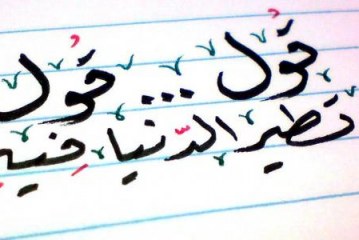 قول ... قول
تطير الدنيا